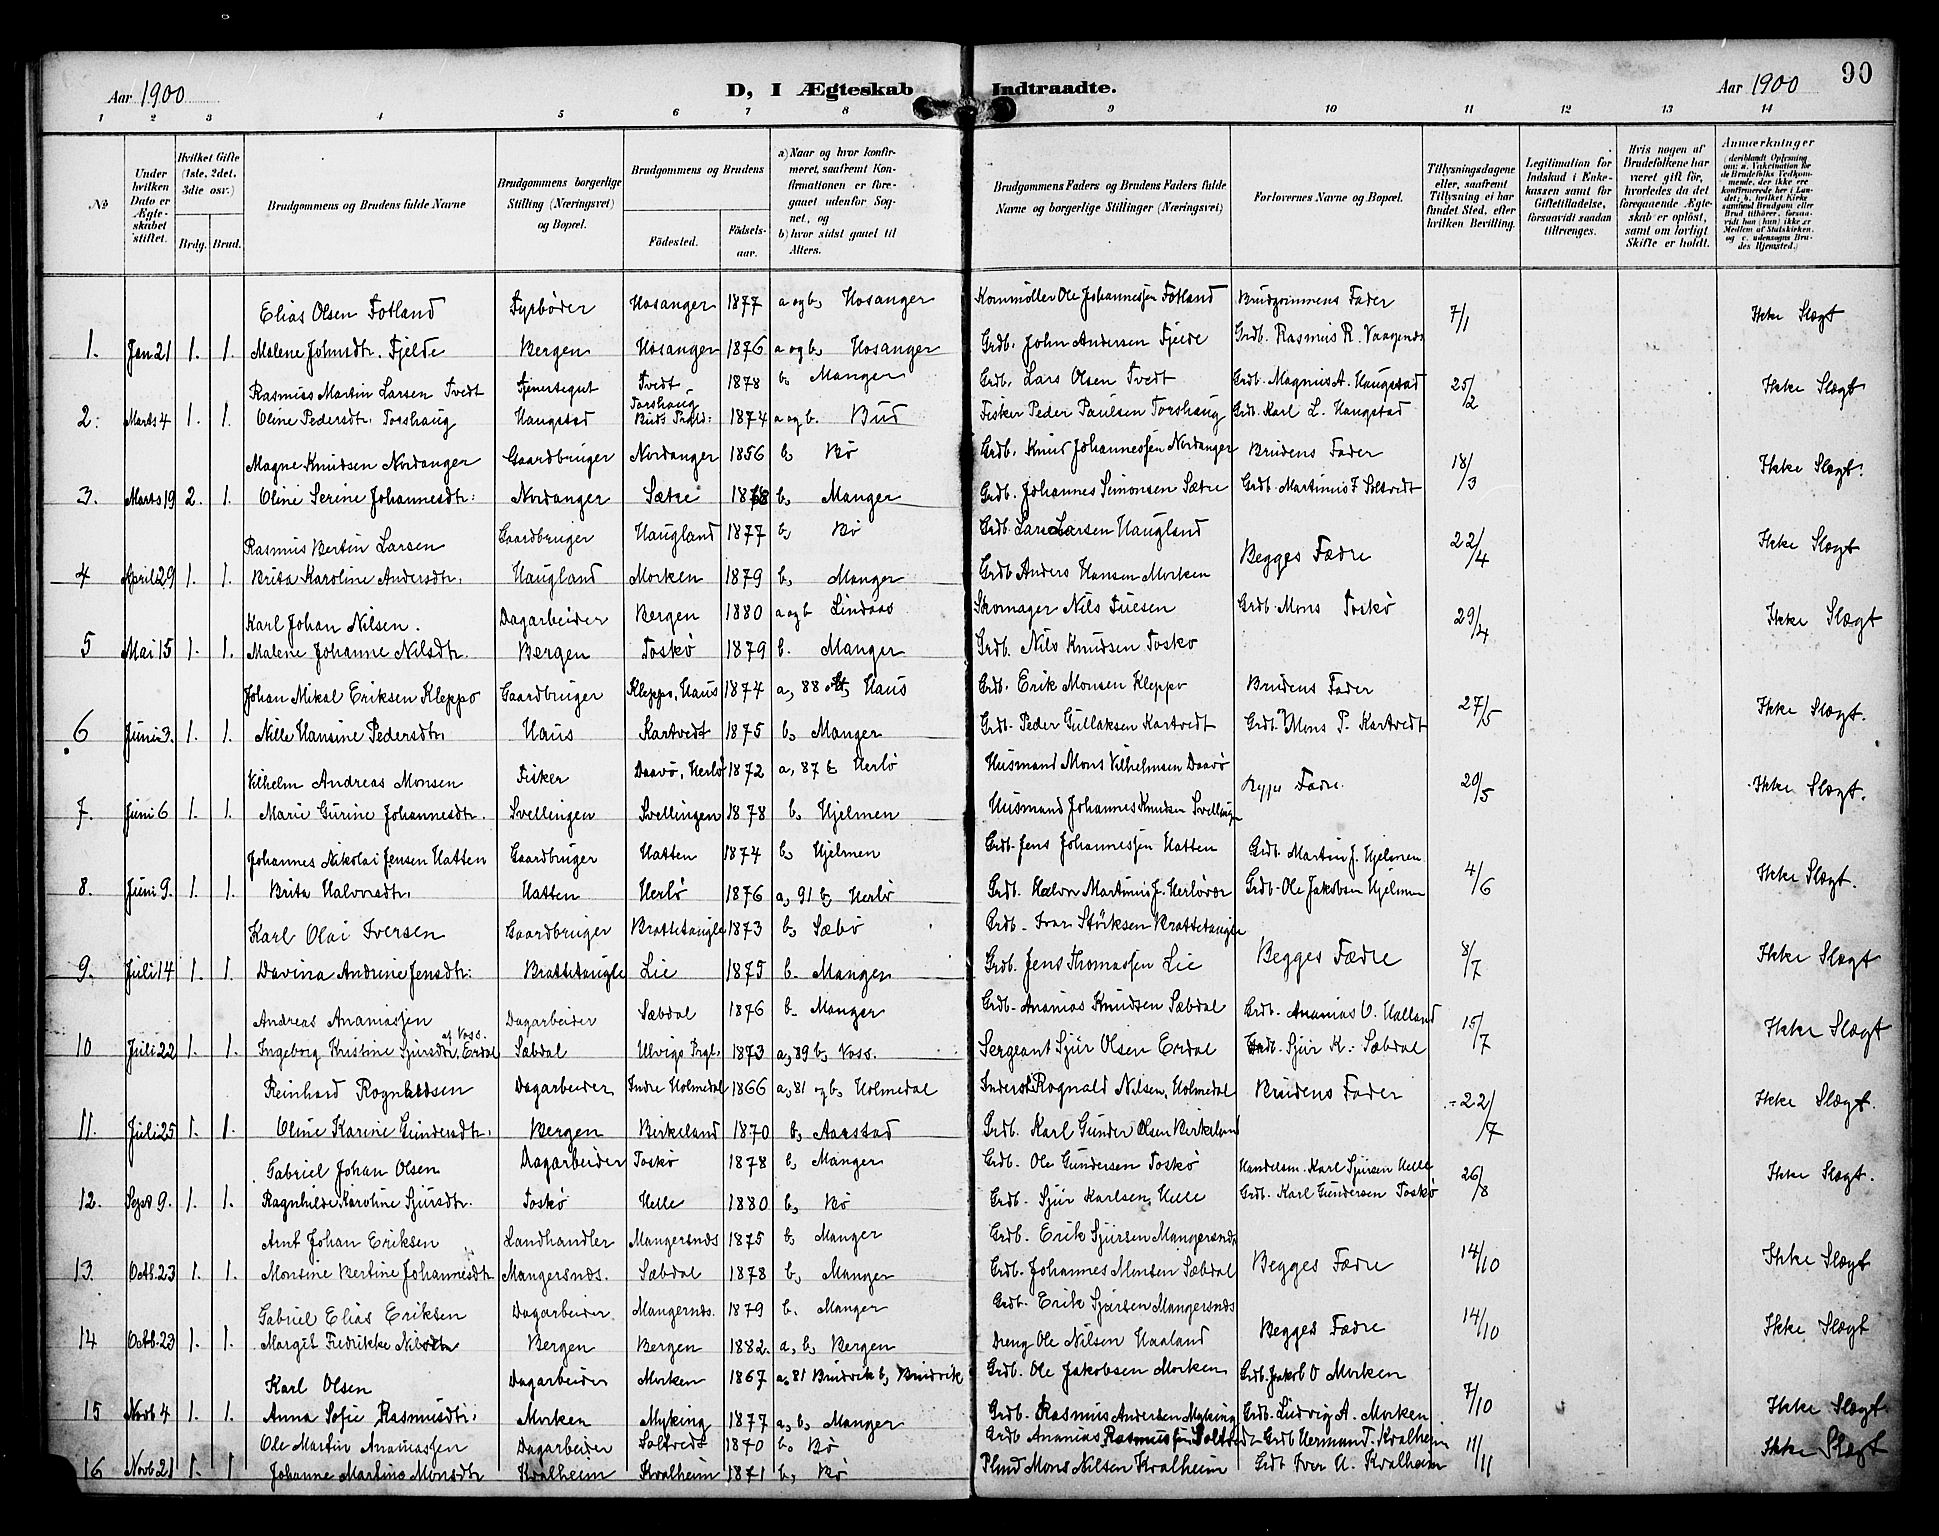 Aar 1900 D, I Ægteskab Indtraadte. Aar 1900 90
1 2 3 4 5 6 7 8 9 10 11 12 13 14
No
Under hvilken Dato er Ægteskabet stiftet.
Hvilket Gifte (1ste, 2det, 3die osv.)
Brdg. Brud.
Brudgommens og Brudens fulde Navne
Brudgommens borgerlige Stilling (Næringsvei) og Bopæl.
Brudgommens og Brudens
Fødested. Fødselsaar.
a) Naar og hvor konfirmeret, saafremt Konfirmationen er foregaaet udenfor Sognet, og
b) hvor sidst gaaet til Alters.
Brudgommens Faders og Brudens Faders fulde Navne og borgerlige Stillinger (Næringsvei)
Forlovernes Navne og Bopæl.
Tillysningsdagene eller, saafremt Tillysning ei har fundet Sted, efter hvilken Bevilling.
Legitimation for Indskud i Enkekassen samt for Giftetilladelse, forsaavidt saadan tiltrænges.
Hvis nogen af Brudefolkene har været gift før, hvorledes da det foregaaende Ægteskab er opløst, samt om lovligt Skifte er holdt.
Anmærkninger
Elias Olsen Fotland Fyrbøder Hosanger 1877 a og b, Hosanger Kornmöller Ole Johannessen Fotland Brudgommens Fader 7/1 Ikke Slægt
1. Jan 21 1. 1. Malene Johnsdtr. Fjelde Bergen Hosanger 1876 a og b, Hosanger Grdb. John Andersen Fjelde Grdb. Rasmus R. Vaagenes
Rasmus Martin Larsen Tvedt Tjenestegut Tvedt 1878 b, Manger Grdb. Lars Olsen Tvedt Grdb. Magnus A. Haugstad 25/2 Ikke Slægt
2. Marts 4 1. 1. Oline Pedersdtr. Torshaug Haugstad Torshaug Buds Prgld. 1874 a og b. Bud Fisker Peder Paulsen Torshaug Grdb. Karl L. Haugstad
Magne Knudsen Nordanger Gaardbruger Nordanger 1856 b, Bø Grdb. Knud Johannessen Nordanger Brudens Fader 18/3 Ikke Slægt.
3. Marts 19 2. 1. Oline Serine Johannesdtr. Nordanger Sætre 1868 b, Manger Grdb. Johannes Simonsen Sætre Grdb. Martinus F. Soltvedt
Rasmus Bertin Larsen Gaardbruger Haugland 1877 b, Bø Grdb. Lars Larsen Haugland Begges Fædre 22/4 Ikke Slægt
4 April 29 1. 1. Brita Karoline Andersdtr. Haugland Morken 1879 b, Manger Grdb Anders Hansen Morken
Karl Johan Nilsen. Dagarbeider Bergen 1880 a og b Lindaas Skomager Nils Tuesen Grdb. Mons Toskø 29/4 Ikke Slægt
5 Mai 15 1. 1. Malene Johanne Nilsdtr. Bergen Toskø 1879 b. Manger Grdb. Nils Knudsen Toskø
Johan Mikal Eriksen Kleppo Gaardbruger Kleppo, Haus 1874 a, 88 og b, Haus Grdb. Erik Monsen Kleppo Brudens Fader 27/5 Ikke Slægt.
6 Juni 3. 1. 1. Nille Hansine Pedersdtr. Haus Kartvedt 1875 b, Manger Grdb. Peder Gullaksen Kartvedt Grdb. Mons P. Kartvedt
Vilhelm Andreas Monsen Fisker Daavø, Herlø 1872 a, 87 b Herlø Husmand Mons Vilhelmsen Daavø Begges Fædre. 20/5 Ikke Slægt.
7. Juni 6 1. 1. Marie Gurine Johannesdtr. Svellingen Svellingen 1878 b, Hjelmen Husmand Johannes Knudsen Svellingen
Johannes Nikolai Jensen Hatten Gaardbruger Hatten 1874 b, Hjelmen Grdb. Jens Johannessen Hatten Grdb. Martin J. Hjelmen 4/6 Ikke Slægt.
8. Juni 9. 1. 1. Brita Halvorsdtr. Hatten Herlø 1876 a, 91 b, Herlø Grdb. Halvor Martinus J. Herløvær Grdb. Ole Jakobsen Hjelmen
Karl Olai Iversen Gaardbruger Brattetaugle 1873 b, Sæbø Grdb. Ivar Störksen Brattetaugle Begges Fædre 8/7 Ikke Slægt
9. Juli 14 1. 1. Davina Andrine Jensdtr. Brattetaugle Lie 1875 b. Manger Grdb. Jens Thomassen Lie
Andreas Ananiassen Dagarbeider Sæbdal 1876 b. Manger Grdb. Ananias Knudsen Sæbdal Grdb. Ananias O. Halland 15/7 Ikke Slægt
10 Juli 22 1. 1. Ingeborg Kristine Sjursdtr. Erdal af Voss. Sæbdal Ulvigs Prgl. 1873 a, 89 b, Voss. Sergeant Sjur Olsen Erdal Grdb. Sjur K. Sæbdal
Reinhard Rognaldsen Dagarbeider Indre Holmedal 1866 a, 81 og b, Holmedal Inderst Rognald Nilsen, Holmedal Brudens Fader 22/7 Ikke Slægt.
11. Juli 25 1. 1. Oline Karine Gundersdtr. Bergen Birkeland 1870 b, Aarstad Grdb. Karl Gunder Olsen Birkeland
Gabriel Johan Olsen Dagarbeider Toskø 1878 b, Manger Grdb. Ole Gundersen Toskø Handelsm. Karl Sjursen Helle 26/8 Ikke Slægt.
12. Sept 9. 1. 1. Ragnhilde Karoline Sjursdtr. Toskø Helle 1880 b, Bø Grdb. Sjur Karlsen Helle Grdb. Karl Gundersen Toskø
Arnt Johan Eriksen Landhandler Mangersnæs 1875 b, Manger Grdb. Erik Sjursen Mangersnæs Begges Fædre 14/10 Ikke Slægt
13. Octb. 23 1. 1. Monsine Bertine Johannesdtr Mangersnæs. Sæbdal 1878 b, Manger Grdb. Johannes Monsen Sæbdal
Gabriel Elias Eriksen Dagarbeider Mangersnæs. 1879 b. Manger Grdb. Erik Sjursen Mangersnæs Begges Fædre 14/10 Ikke Slægt
14 Octb. 23 1. 1. Margit Fredrikke Nilsdtr Bergen Bergen 1882. a, b, Bergen Dreng Ole Nilsen Haaland
Karl Olsen Dagarbeider Morken 1867 a, 81 Brudvik b, Brudvik Grdb. Ole Jakobsen Morken Grdb. Jakob O Morken 7/10 Ikke Slægt.
15 Novb 4 1. 1. Anna Sofie Rasmusdtr. Morken Myking 1877 a, b, Manger Grdb. Rasmus Andersen Myking Grdb. Ludvig A. Morken
Ole Martin Ananiassen Dagarbeider Soltvedt 1870 b, Bø Grdb Ananias Rasmussen Soltvedt Grdb Herman T. Kvalheim 11/11 Ikke Slægt
16 Novb 21 1. 1 Johanne Martine Monsdtr Kvalheim Kvalheim 1871 b, Bø Mons Nilsen Kvalheim Grdb Iver A. Kvalheim